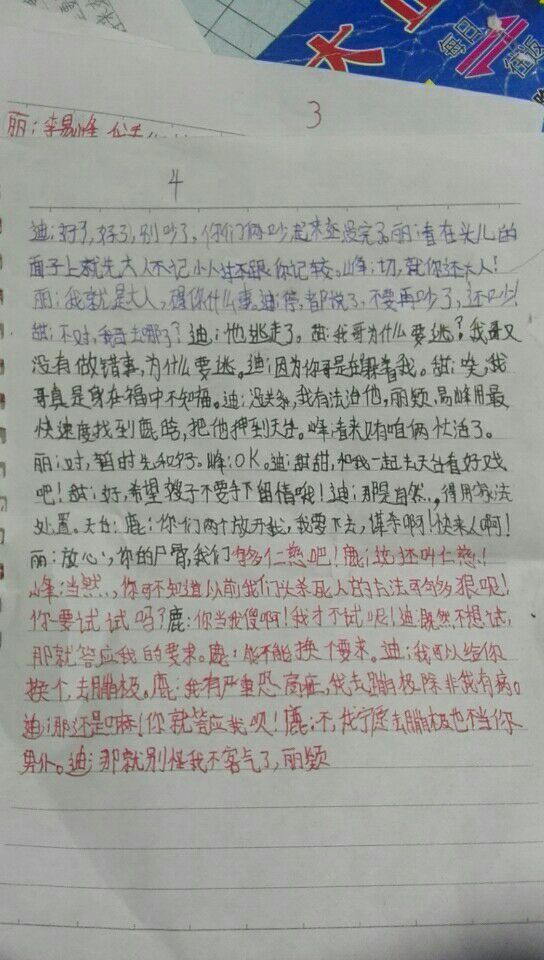 大
每日
往返
3
丽:李易峰
4
迪:好了,好了,别吵了,你们俩吵起来还没完了。丽:看在头儿的
面子上就先大人不记小人过不跟你记较。峰:切,就你还大人!
丽:我就是大人,碍你什么事。迪:停,都说了,不要再吵了,还吵!
甜:不对,我哥去哪了?迪:他逃走了。甜:我哥为什么要逃?我哥又
没有做错事,为什么要逃。迪:因为你哥是在躲着我。甜:唉,我
哥真是身在福中不知福。迪:没关系,我有法治他,丽颖,易峰用最
快速度找到鹿晗,把他押到天台。峰:看来只有咱俩忙活了。
丽:对,暂时先和好。峰:OK。迪:甜甜,和我一起去天台看好戏
吧!甜:好,希望嫂子不要手下留情哦!迪:那是自然,得用家法
处置。天台:鹿:你们两个放开我,我要下去,谋杀啊!快来人啊!
丽:放心,你的尸骨,我们 够多仁慈吧!鹿:这还叫仁慈!
峰:当然,你可不知道以前我们头杀死人的方法可够多狠呢!
你要试试吗?鹿:你当我傻啊!我才不试呢!迪:既然不想试,
那就答应我的要求。鹿:能不能换个要求。迪:我可以给你
换个,去蹦极。鹿:我有严重恐高症,我去蹦极除非我有病。
迪:那还是嘛!你就答应我呗!鹿:不,我宁愿去蹦极也不当你
男仆。迪:那就别怪我不客气了,丽颖